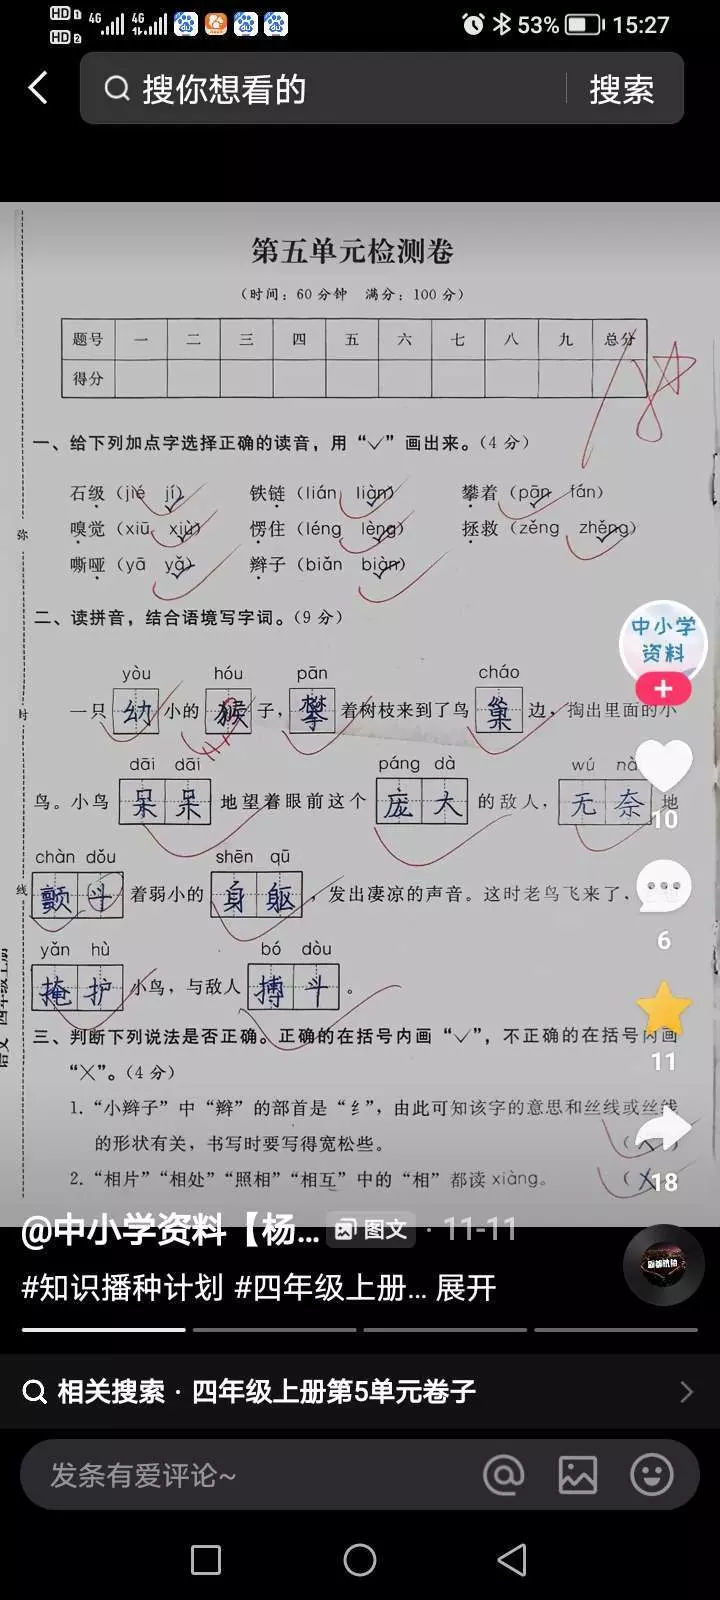 HD 1 4G 4G 53% 15:27
HD 2
搜你想看的 搜索
第五单元检测卷
(时间：60分钟 满分：100分)
题号 一 二 三 四 五 六 七 八 九 总分
得分
一、给下列加点字选择正确的读音，用“√”画出来。(4分)
石级（jié jí） 铁链（lián liàn） 攀着（pān fán）
嗅觉（xiū xiù） 愣住（léng lèng） 拯救（zěng zhěng）
嘶哑（yā yǎ） 辫子（biǎn biàn）
二、读拼音，结合语境写字词。(9分)
yòu hóu pān cháo
一只幼小的猴子，攀着树枝来到了鸟巢边，掏出里面的小
dāi dāi páng dà wú nà
鸟。小鸟呆呆地望着眼前这个庞大的敌人，无奈地
chàn dǒu shēn qū
颤斗着弱小的身躯，发出凄凉的声音。这时老鸟飞来了，
yǎn hù bó dòu
掩护小鸟，与敌人搏斗。
三、判断下列说法是否正确。正确的在括号内画“√”，不正确的在括号内画
“×”。(4分)
1. “小辫子”中“辫”的部首是“纟”，由此可知该字的意思和丝线或丝线
的形状有关，书写时要写得宽松些。（
2. “相片”“相处”“照相”“相互”中的“相”都读 xiàng。（×
弥
封
线
中小学
资料
10
6
11
18
@中小学资料【杨... 图文 · 11-11
#知识播种计划 #四年级上册... 展开
相关搜索 · 四年级上册第5单元卷子
发条有爱评论~